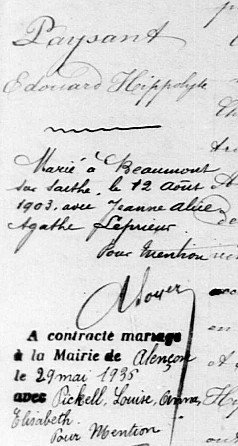 Paysant
Edouard Hippolyte
Marié à Beaumont
sur Sarthe, le 12 Août
1903, avec Jeanne Alice
Agathe Leprieur.
Pour Mention
A contracté mariage
à la Mairie de Alençon
le 29 mai 1935
avec Pickell, Louise,
Elisabeth.
Pour Mention